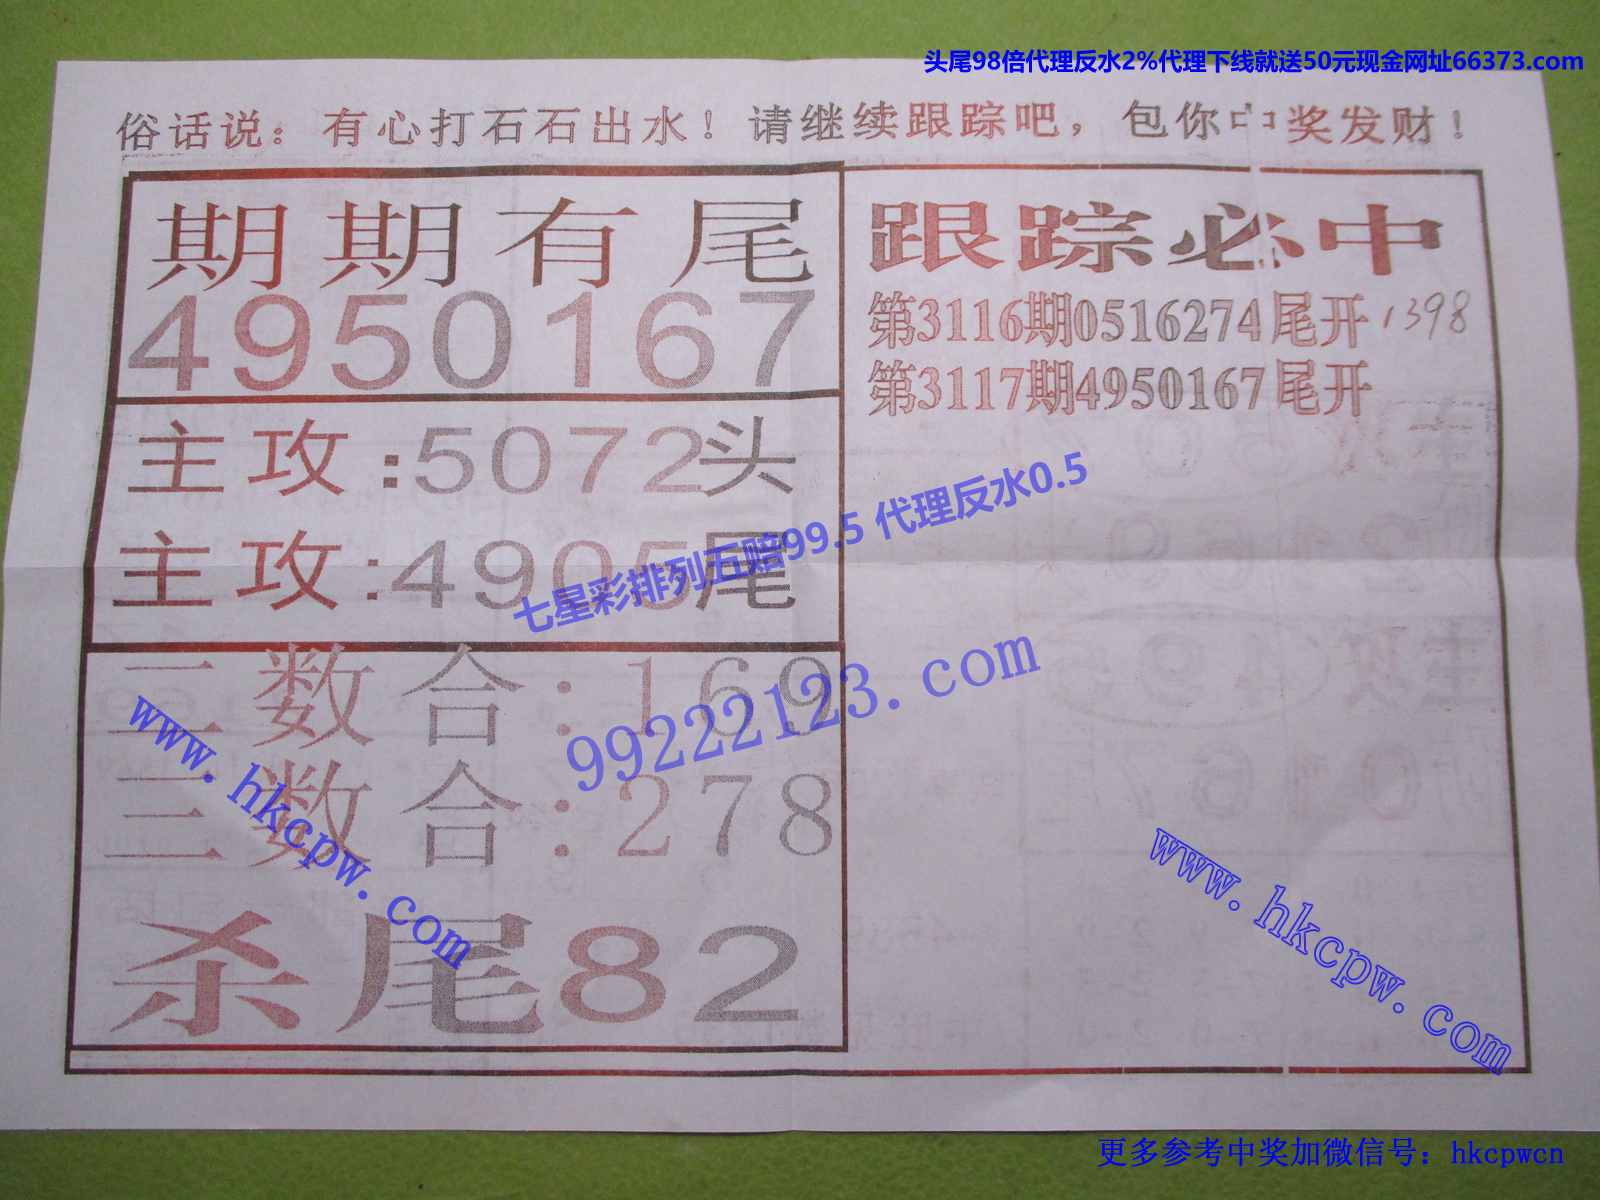 头尾98倍代理反水2%代理下线就送50元现金网址66373.com
俗话说：有心打石石出水！请继续跟踪吧，包你中奖发财！
期期有尾
4950167
主攻:5072头
主攻:4905尾
二数合:169
三数合:278
杀尾82
跟踪必中
第3116期0516274尾开1398
第3117期4950167尾开
七星彩排列五赔99.5 代理反水0.5
99222123.com
www.hkcpw.com
www.hkcpw.com
更多参考中奖加微信号：hkcpwcn